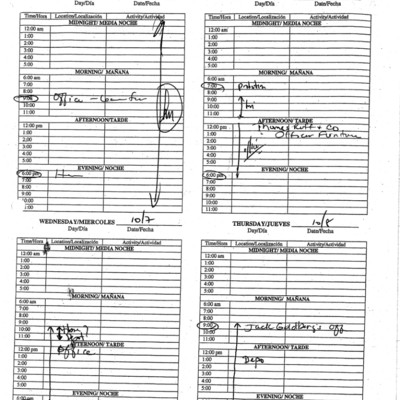 Day/Día Date/Fecha
Day/Día Date/Fecha
Time/Hora Location/Localización Activity/Actividad
MIDNIGHT/ MEDIA NOCHE
12:00 am
1:00
2:00
3:00
4:00
5:00
MORNING/ MAÑANA
6:00 am
7:00
8:00
9:00 Office -
10:00
11:00
AFTERNOON/TARDE
12:00 pm
1:00
2:00
3:00
4:00
5:00
EVENING/ NOCHE
6:00 pm
7:00
8:00
9:00
10:00
11:00
Time/Hora Location/Localización Activity/Actividad
MIDNIGHT/ MEDIA NOCHE
12:00 am
1:00
2:00
3:00
4:00
5:00
MORNING/ MAÑANA
6:00 am
7:00
8:00
9:00
10:00
11:00
AFTERNOON/TARDE
12:00 pm
1:00 Office Furniture
2:00
3:00
4:00
5:00
EVENING/ NOCHE
6:00 pm
7:00
8:00
9:00
10:00
11:00
WEDNESDAY/MIERCOLES 10/7
Day/Día Date/Fecha
Time/Hora Location/Localización Activity/Actividad
MIDNIGHT/ MEDIA NOCHE
12:00 am
1:00
2:00
3:00
4:00
5:00
MORNING/ MAÑANA
6:00 am
7:00
8:00
9:00
10:00
11:00
AFTERNOON/ TARDE
12:00 pm Office
1:00
2:00
3:00
4:00
5:00
EVENING/ NOCHE
THURSDAY/JUEVES 10/8
Day/Día Date/Fecha
Time/Hora Location/Localización Activity/Actividad
MIDNIGHT/ MEDIA NOCHE
12:00 am
1:00
2:00
3:00
4:00
5:00
MORNING/ MAÑANA
6:00 am
7:00
8:00
9:00
10:00 Jack Goldberg's Off
11:00
AFTERNOON/ TARDE
12:00 pm
1:00 Depo
2:00
3:00
4:00
5:00
EVENING/ NOCHE